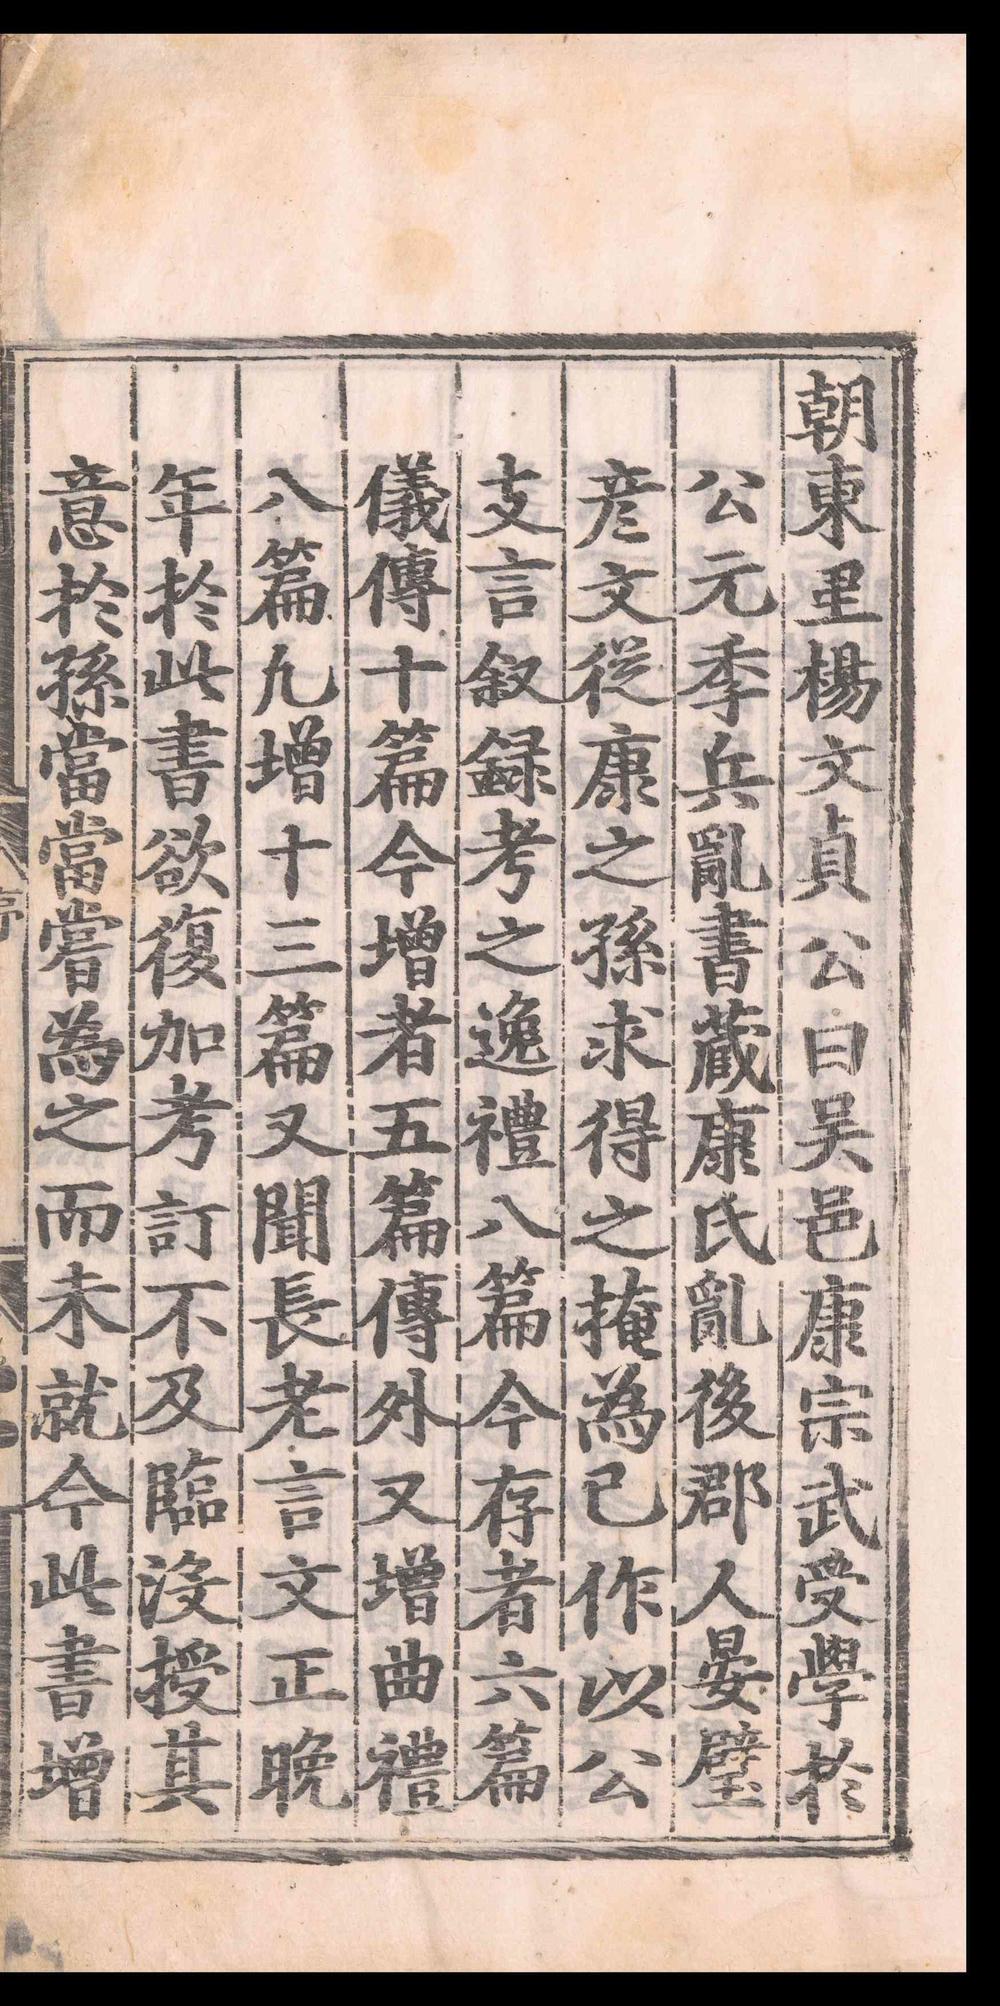 朝東里楊文貞公曰吴邑康宗武受學於
公元季兵亂書蔵康氏亂後郡人晏璧
彥文從康之孫求得之掩為已作以公
支言叙録考之逸禮八篇今存者六篇
儀傳十篇今增者五篇傳外又增曲禮
八篇凢增十三篇又聞長老言文正晚
年於此書欲復加考訂不及臨沒授其
意於孫當當嘗為之而未就今此書增